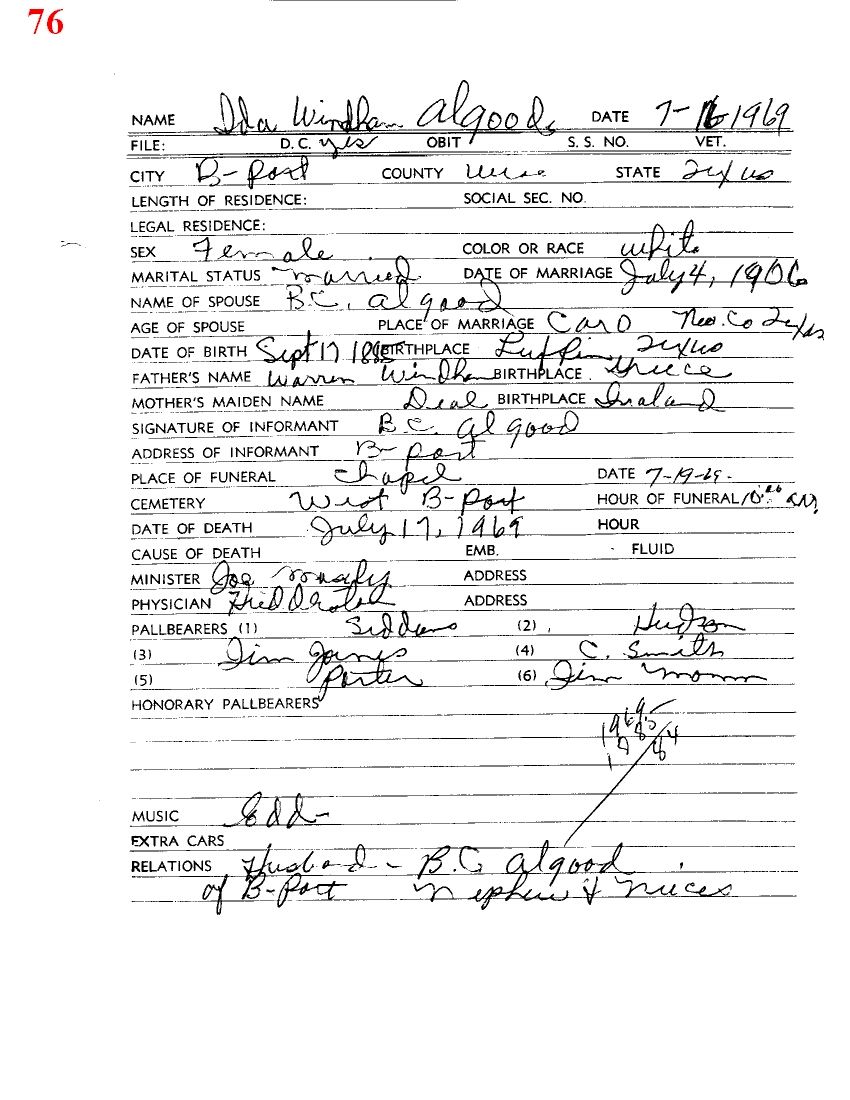 76
NAME Ida Windham Algood DATE 7-16-1969
FILE: D.C. yes OBIT S. S. NO. VET.
CITY B-port COUNTY Wise STATE Texas
LENGTH OF RESIDENCE: SOCIAL SEC. NO.
LEGAL RESIDENCE:
SEX Female COLOR OR RACE white
MARITAL STATUS married DATE OF MARRIAGE July 4, 1906
NAME OF SPOUSE B.C. Algood
AGE OF SPOUSE PLACE OF MARRIAGE Caro Nac. Co Texas
DATE OF BIRTH Sept 17 1885 BIRTHPLACE Lufkin, Texas
FATHER'S NAME Warren Windham BIRTHPLACE Greece
MOTHER'S MAIDEN NAME Deal BIRTHPLACE Iraland
SIGNATURE OF INFORMANT B.C. Algood
ADDRESS OF INFORMANT B-port
PLACE OF FUNERAL Chapel DATE 7-19-69-
CEMETERY West B-port HOUR OF FUNERAL 10:00 am
DATE OF DEATH July 17, 1969 HOUR
CAUSE OF DEATH EMB. FLUID
MINISTER Joe ADDRESS
PHYSICIAN ADDRESS
PALLBEARERS (1) Siddens (2) Hudson
(3) Jim Jones (4) C. Smith
(5) Porter (6) Jim
HONORARY PALLBEARERS
1969
84
MUSIC Edd-
EXTRA CARS
RELATIONS Husband - B.C. Algood
of B-Port Nephews & Nieces